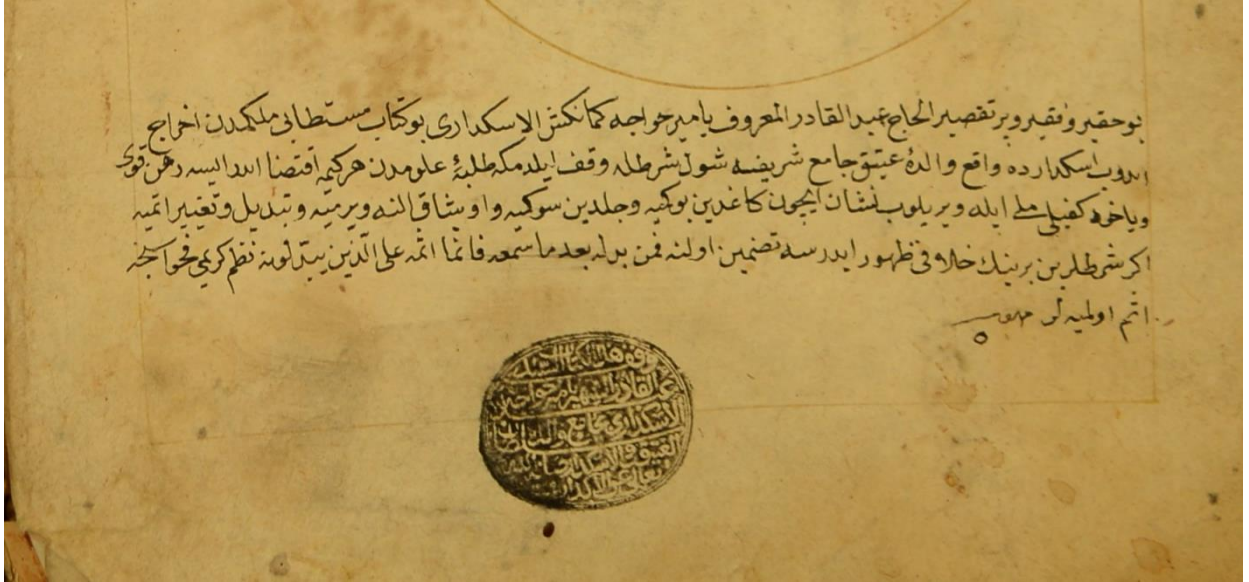 بو حقير و فقير و پر تقصير الحاج عبد القادر المعروف بامير خواجه كمانكش الاسكدارى بو كتاب مستطابى ملكمدن اخراج
ايدوب اسكدارده واقع والدۀ عتيق جامع شريفنه شول شرطله وقف ايلدمكه طلبۀ علومدن هر كيمه اقتضا ايدر ايسه رهن قوى
وياخود كفيل ملى ايله ويريلوب نشان ايچون كاغدين بوكميه و جلدين سوكميه و اويشاق النه ويرميه و تبديل و تغيير اتميه
اكر شرطلرين برينك خلافى ظهور ايدرسه تضمين اولنه فمن بدله بعد ما سمعه فانما اثمه على الذين يبدلونه نظم كريمى فحواسنجه
اثم اولميه لر
وقف هذا الكتاب
عبد القادر الشهير بامير خواجه
الاسكدارى بجامع والده